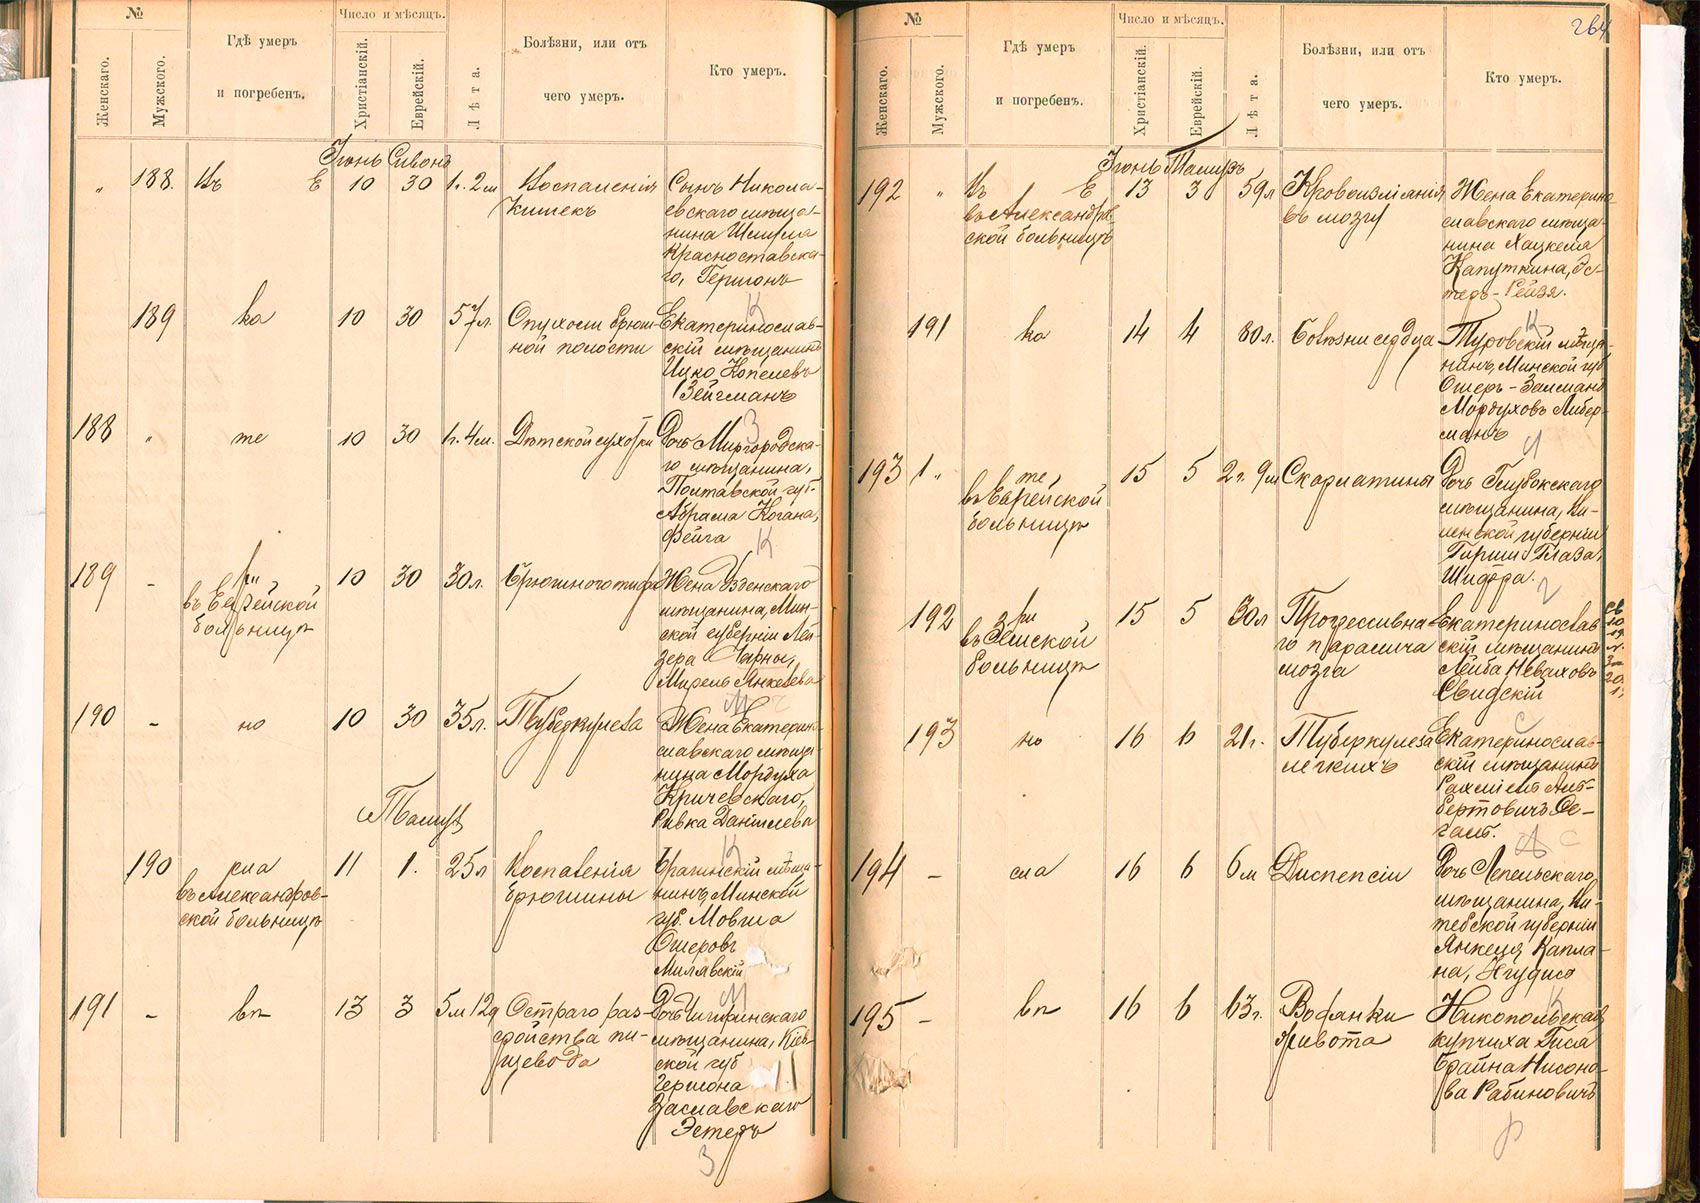 №
Женскаго.
Мужского.
Гдѣ умеръ
и погребенъ.
Число и мѣсяцъ.
Христіанскій.
Еврейскій.
Лѣта.
Болѣзни, или отъ
чего умеръ.
Кто умеръ.
Іюнь Сивонъ
" 188. Въ Е 10 30 1г. 2м Воспаленія
кишекъ
Сынъ Никола-
евскаго мѣща-
нина Шмуля
Красноставска-
го, Гершонъ
К
189 ка 10 30 57л. Опухоли брюш-
ной полости
Екатеринослав-
скій мѣщанинъ
Ицко Копелевъ
Зейгманъ
З
188 " те 10 30 1г. 4м. Дѣтской сухотки
Дочь Миргородска-
го мѣщанина,
Полтавской губ.
Абрама Когана,
Фейга
К
189 - ри
въ Еврейской
больницѣ
10 30 30л. Брюшного тифа
Жена Узденскаго
мѣщанина, Мин-
ской губерніи Лей-
зера Чарны,
Мирель Янкелева
190 - но 10 30 35л. Туберкулеза
Жена Екатерино-
славскаго мѣща-
нина Мордуха
Кричевскаго,
Ривка Даніилева
К
Тамузъ
190 сла
въ Александров-
ской больницѣ
11 1. 25л Воспаленія
брюшины
Брагинскій мѣща-
нинъ, Минской
губ. Мовша
Ошеровъ
Милявскій
М
191 - вѣ 13 3 5м 12д Остраго раз-
стройства пи-
щевода
Дочь Чигиринскаго
мѣщанина, Кіев-
ской губ
Гершона
Заславскаго
Эстеръ
З
264
№
Женскаго.
Мужского.
Гдѣ умеръ
и погребенъ.
Число и мѣсяцъ.
Христіанскій.
Еврейскій.
Лѣта.
Болѣзни, или отъ
чего умеръ.
Кто умеръ.
Іюнь Тамузъ
192 " Въ Е
въ Александров-
ской больницѣ
13 3 59л Кровоизліянія
въ мозгу
Жена Екатерино-
славскаго мѣща-
нина Хацкеля
Капуткина, Эс-
теръ-Рейзя.
К
191 ка 14 4 80л. Болѣзни сердца
Туровскій мѣща-
нинъ, Минской губ
Ошеръ-Залманъ
Мордуховъ Либер-
манъ
193 1" те
въ Еврейской
больницѣ
15 5 2г. 9м Скарлатины
Дочь Глубокскаго
мѣщанина, Ви-
ленской губерніи
Гирши Глаза,
Шифра.
Г
192 ри
въ Земской
больницѣ
15 5 30л Прогрессивна-
го паралича
мозга
Екатеринослав-
скій мѣщанинъ
Лейба Неваховъ
Свидскій
С
193 но 16 6 21г. Туберкулеза
легкихъ
Екатеринослав-
скій мѣщанинъ
194 - сла 16 6 6м Диспепсіи
Дочь Лепельскаго
мѣщанина, Ви-
тебской губерніи
Янкеля Капла-
на,
К
195 - вѣ 16 6 63г. Водянки
живота
Никопольская
купчиха Гися
Брайна Нисоно-
ва Рабиновичъ
Р